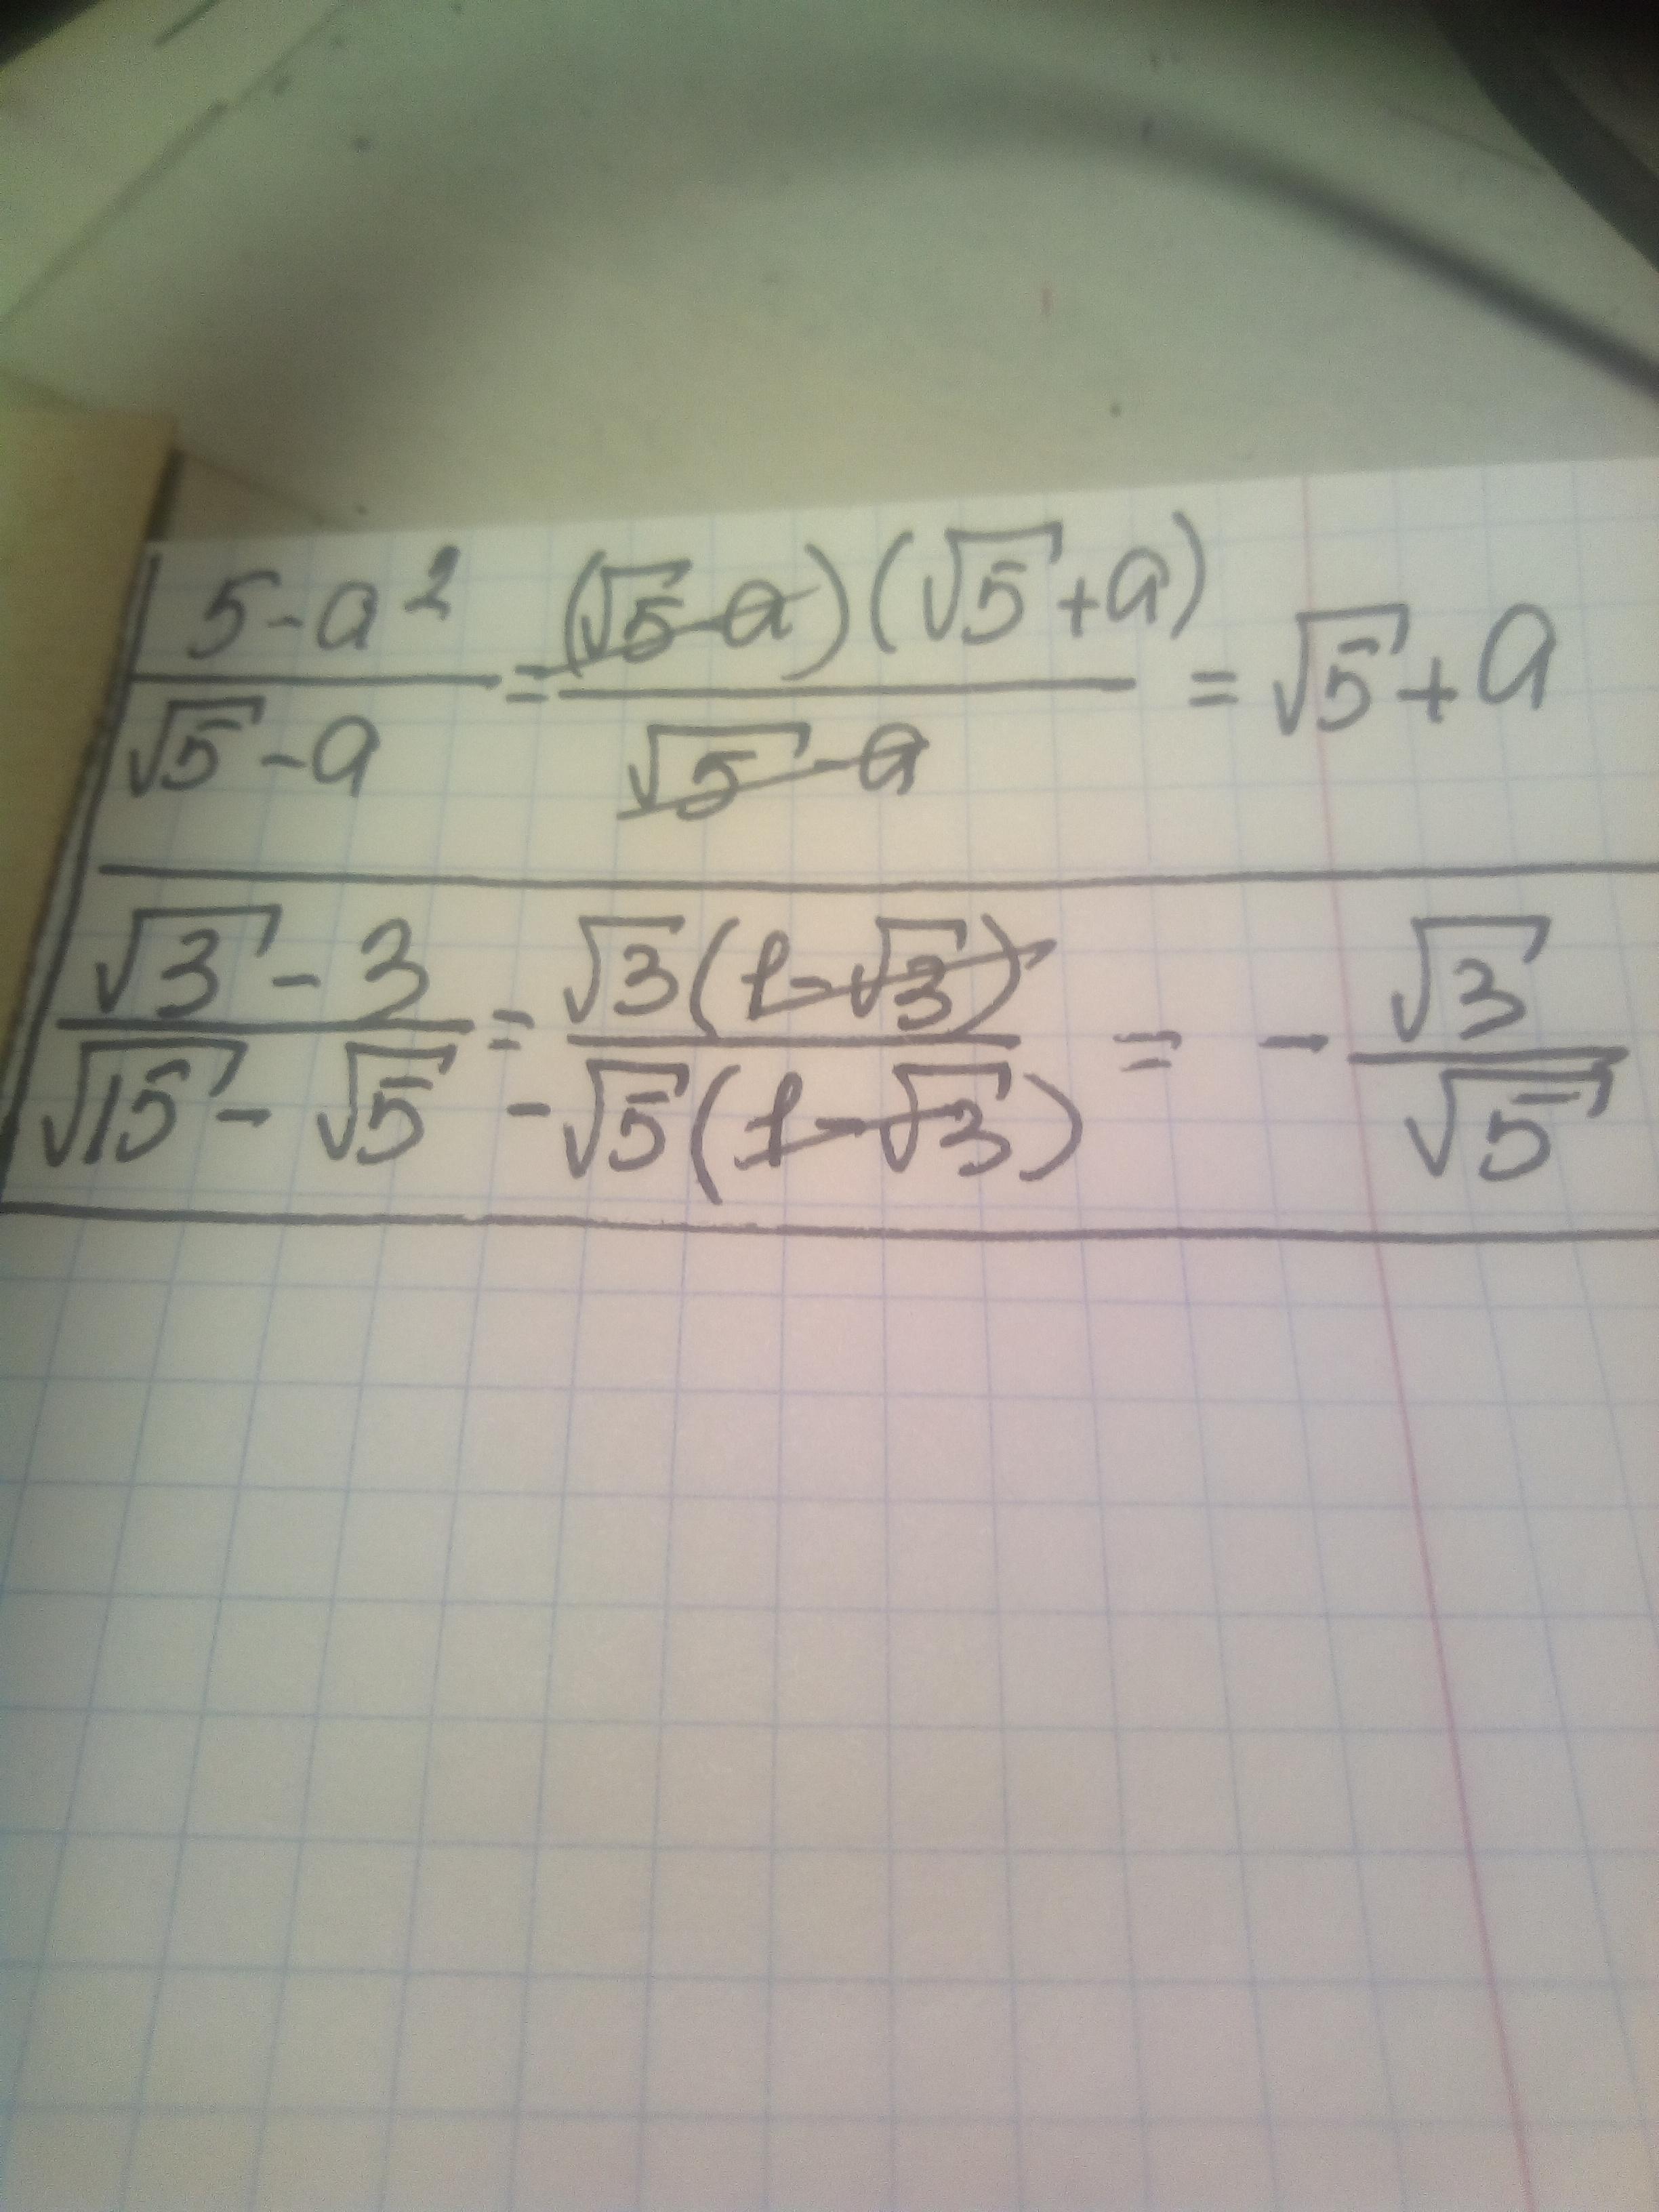 (5-a²)/(√5-a) = ((√5-a)(√5+a))/(√5-a) = √5+a
(√3-3)/(√15-√5) = (√3(1-√3))/(-√5(1-√3)) = -√3/√5